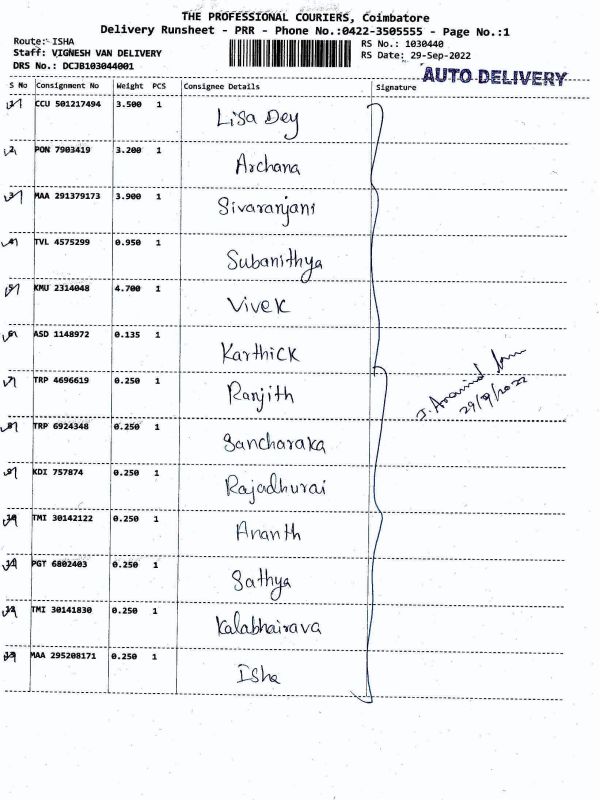 THE PROFESSIONAL COURIERS, Coimbatore
Delivery Runsheet - PRR - Phone No.:0422-3505555 - Page No.:1
Route:- ISHA
RS No.: 1030440
Staff: VIGNESH VAN DELIVERY
RS Date: 29-Sep-2022
DRS No.: DCJB103044001
AUTO DELIVERY
S No Consignment No Weight PCS Consignee Details Signature
1 CCU 501217494 3.500 1 Lisa Dey
2 PON 7903419 3.200 1 Archana
3 MAA 291379173 3.900 1 Sivaranjani
4 TVL 4575299 0.950 1 Subanithya
5 KMU 2314048 4.700 1 Vivek
6 ASD 1148972 0.135 1 Karthick
7 TRP 4696619 0.250 1 Ranjith
J. Aravind
29/9/2022
8 TRP 6924348 0.250 1 Sancharaka
9 KDI 757874 0.250 1 Rajadhurai
10 TMI 30142122 0.250 1 Ananth
11 PGT 6802403 0.250 1 Sathya
12 TMI 30141830 0.250 1 Kalabhairava
13 MAA 295208171 0.250 1 Isha